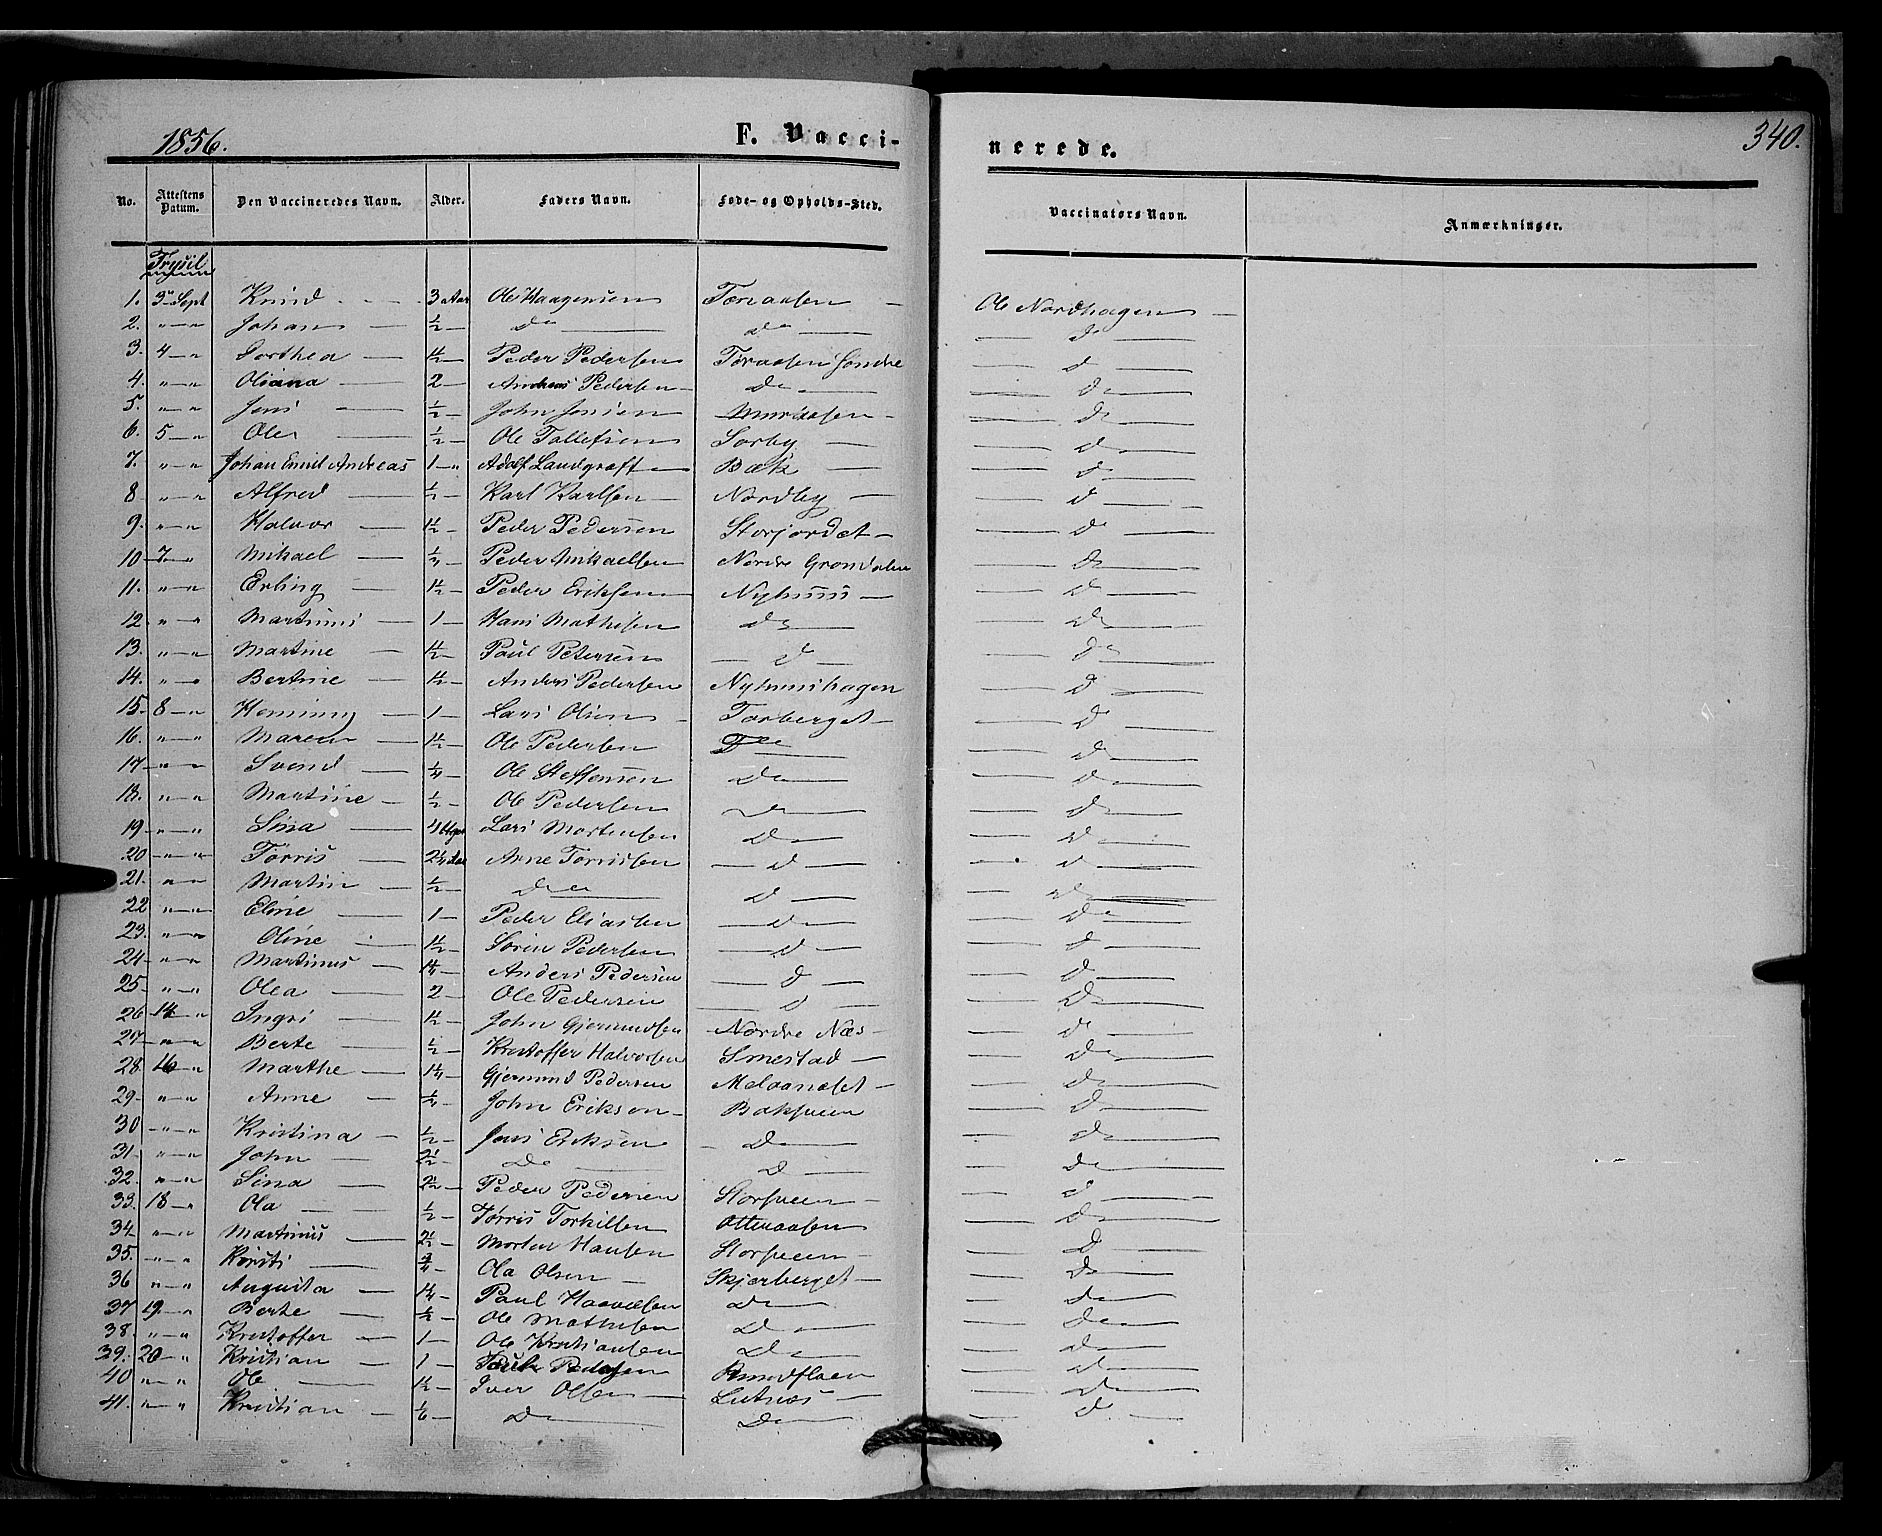 1856.
F. Vacci-
nerede.
340.
No. Attestens Datum. Den Vaccineredes Navn. Alder. Faders Navn. Føde- og Opholds-Sted. Vaccinatørs Navn. Anmærkninger.
Trysil
1. 3 Sept Knud 3 Aar Ole Haagensen Ole Nordhagen
2. " " Johan ½ do do do
3. 4 " Dorthea 1½ Peder Pedersen Toraasen Søndre do
4. " " Oliana 2 Andreas Pedersen do do
5. " " Jens ½ John Jensen do
6. 5 " Ole ½ Ole Tollefsen Sorby do
7. " " Johan Emil Andreas 1 " Adolf Landgraff Bæk do
8 " " Alfred ½ Karl Karlsen Nordby do
9. " " Halvor 1½ Peder Pedersen Storjordet do
10 7 " Mikael ¼ Peder Mikaelsen Nordre Grøndalen do
11. " " Erling 1½ Peder Eriksen Nyhuus do
12. " " Martinus 1 Hans Mathisen do do
13. " " Martine 1½ Paul Petersen do do
14. " " Bertine 1½ Anders Pedersen Nyhuushagen do
15. 8 " Heming 1 Lars Olsen Torberget do
16. " " Maren 1½ Ole Pedersen do do
17 " " Svend ¼ Ole Steffensen do do
18. " " Martine ½ Ole Pedersen do do
19 " " Sina 4 Uger Lars Mortensen do do
20 " " Torris 2¼ Aar Arne Torrissen do do
21. " " Martin ½ do do do
22 " " Eline 1 Peder Eliassen do do
23. " " Oline 1½ Søren Pedersen do do
24 " " Martinus 1¼ Anders Pedersen do do
25 " " Olea 2 Ole Pedersen do do
26 14 " Ingri 1½ John Gjermundsen Nordre Næs do
27 " " Berte ½ Kristoffer Halvorsen Smestad do
28 16 " Marthe 1¼ Gjermund Pedersen do
29 " " Anne ¼ John Eriksen Bakveen do
30 " " Kristina ½ Jens Eriksen do do
31 " " John 2½ do do do
32. " " Sina 2½ Peder Pedersen Storveen do
33. 18 " Ola ½ Torris Torkilsen Otteraasen do
34 " " Martinus 2½ Morten Hansen Storveen do
35. " " Kristi ¾ Ola Olsen Skjærberget do
36 " " Augusta 1¼ Paul Haavelsen do do
37 19 " Berte ½ Ole Mathisen do do
38. " " Kristoffer 1 Ole Kristiansen do do
39. 20 " Kristian 1 Paul Pedersen do
40 " " Ole 1½ Iver Olsen Lutnæs do
41. " " Kristian ⅙ do do do